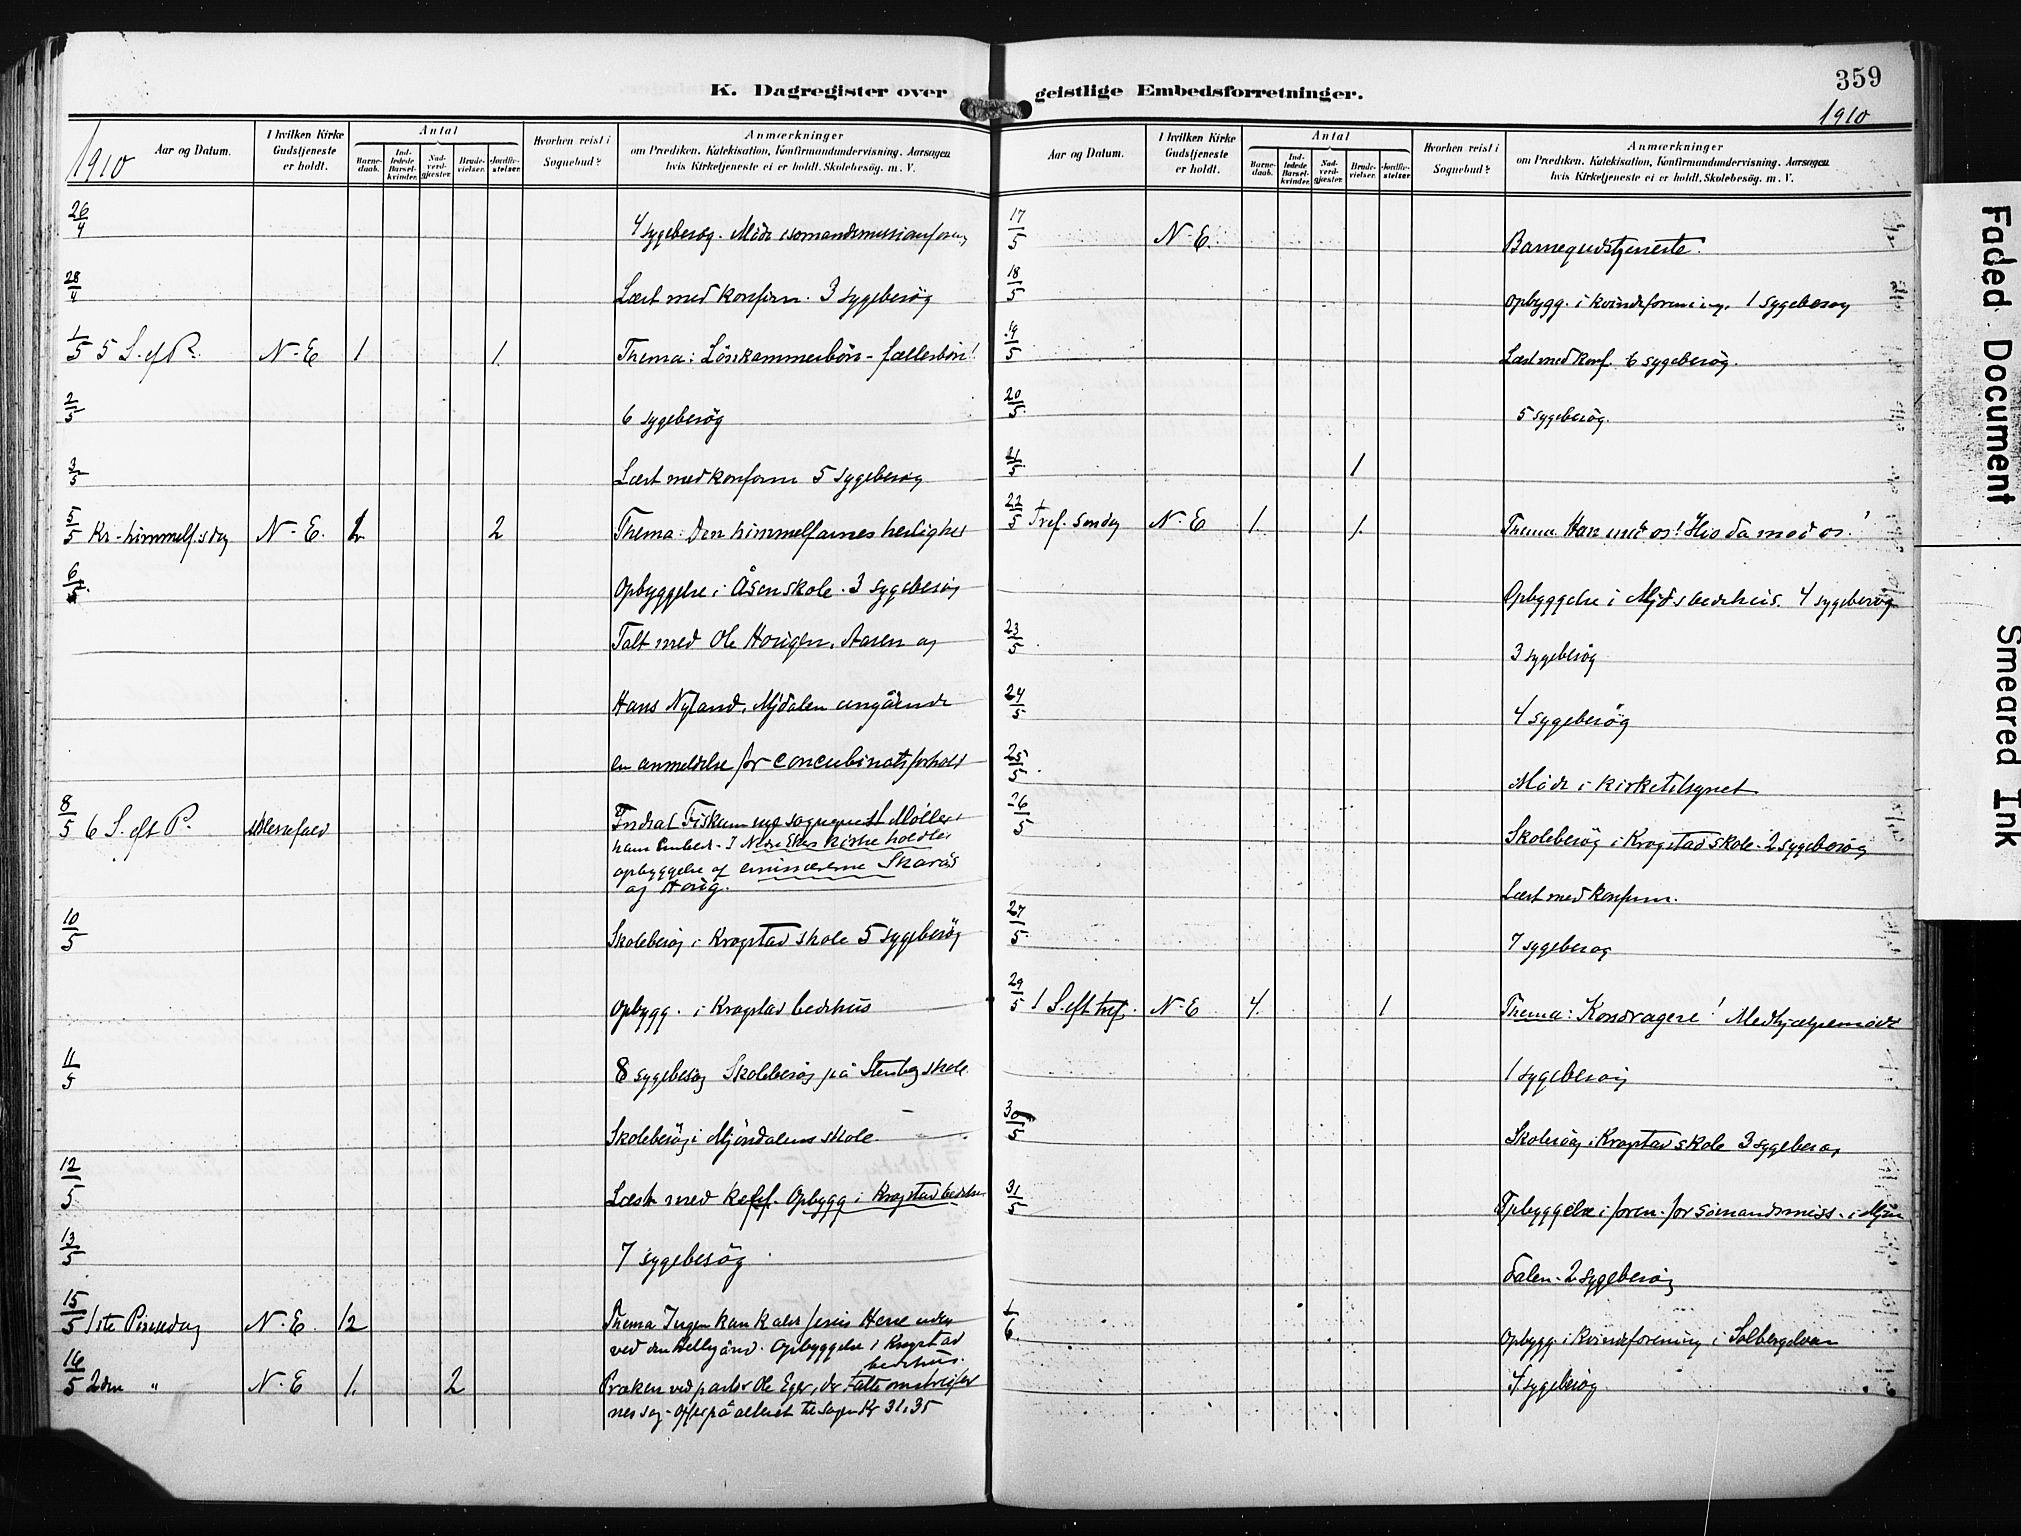 K. Dagregister over geistlige Embedsforretninger.
359
1910
1910
Aar og Datum.
I hvilken Kirke Gudstjeneste er holdt.
Antal
Barnedaab.
Indledede Barselkvinder.
Nadverdgjester.
Brudevielser.
Jordfæstelser.
Hvorhen reist i Sognebud?
Anmærkninger
om Prædiken, Katekisation, Konfirmandundervisning, Aarsagen
hvis Kirketjeneste ei er holdt, Skolebesøg. m. V.
26/4 4 sygebesøg. Møde i
28/4 Læst med konfirm. 3 sygebesøg
1/5 5 S. ef P. N-E 1 1. Thema: Lönkammerbön - fællesbön!
2/5 6 sygebesøg
3/5 Læst med konfirm 5 sygebesøg
5/5 Kr-himmelf.sdag N-E. 2 Thema: Den himmelfarnes herlighet
6/5 Opbyggelse i Åsen skole. 3 sygebesøg
Talt med Ole Horigen, Aasen og
Hans Nyland, Mjdalen angående
en anmeldelse for concubinatsforhold
8/5 6 S. eft P. Messefald Indsat Fiskum nye sogneprest Møller i
hans Embed. I Nedre Ekers kirke holdtes
opbyggelse af emissærerne Skarås
og Horig.
10/5 Skolebesøg i Krogstad skole 5 sygebesøg
Opbygg. i Krogstad bedehus
11/5 8 sygebesøg Skolebesøg på Stenberg skole.
Skolebesøg i Mjøndalens skole.
12/5 Læst med Opbygg i Krogstad bedehus
13/5 7 sygebesøg
15/5 1ste Pinsedag N.E. 12 Thema Ingen kan kalde Jesus Herre uden
ved den Helligånd. Opbyggelse i Krogstad
bedehus.
16/5 2den " N.E 1. 2 Præken ved pastor Ole Eger, de
nes sag. Offer på alteret til sagen Kr 31,35
Aar og Datum.
I hvilken Kirke Gudstjeneste er holdt.
Antal
Barnedaab.
Indledede Barselkvinder.
Nadverdgjester.
Brudevielser.
Jordfæstelser.
Hvorhen reist i Sognebud?
Anmærkninger
om Prædiken, Katekisation, Konfirmandundervisning, Aarsagen
hvis Kirketjeneste ei er holdt, Skolebesøg. m. V.
17/5 N-E. Barnegudstjeneste.
18/5 Opbygg. i kvindeforening, 1 sygebesøg
19/5 Læst med konf. 6 sygebesøg.
20/5 5 sygebesøg.
21/5 1
22/5 Tref. søndag N-E 1. 1. Thema Han med os! Hvo da mod os!
Opbyggelse i Mjds bedehus. 4 sygebesøg
23/5 3 sygebesøg
24/5 4 sygebesøg
25/5 Møde i kirketilsynet
26/5 Skolebesøg i Krogstad skole. 2 sygebesøg
Læst med konfirm.
27/5 7 sygebesøg
29/5 1 S. eft tref. N-E 4. 1 Thema: Korsdragere! Medhjælpermøde
1 sygebesøg
30/5 Skolebesøg i Krogstad skole 3 sygebesøg
31/5 Opbyggelse i foren. for sømandsmiss. i Mjön
dalen. 2 sygebesøg
1/6 Opbygg. i kvindeforening i Solbergelven
4 sygebesøg
Faded Document
Smeared Ink